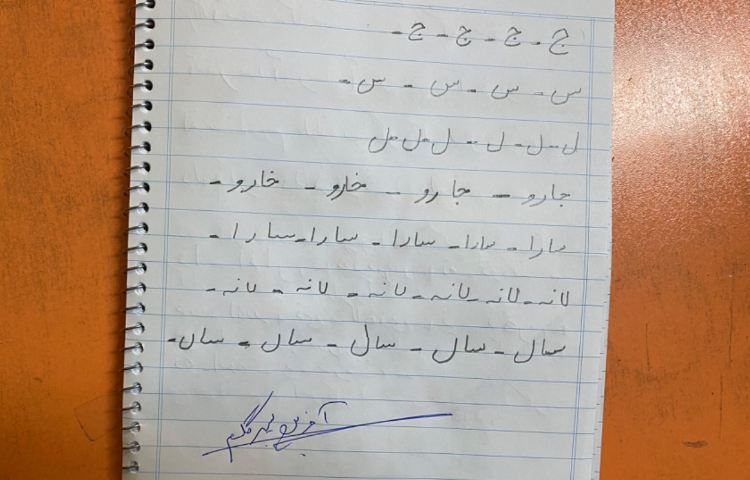 ج - ج - ج - ج -
س - س - س - س -
ل - ل - ل - ل - ل - ل
جارو - جارو - خارو - خارو -
سارا - سارا - سارا - سارا - سارا -
لانه - لانه - لانه - لانه - لانه - لانه -
سال - سال - سال - سال - سال -
آفرین پسر گلم